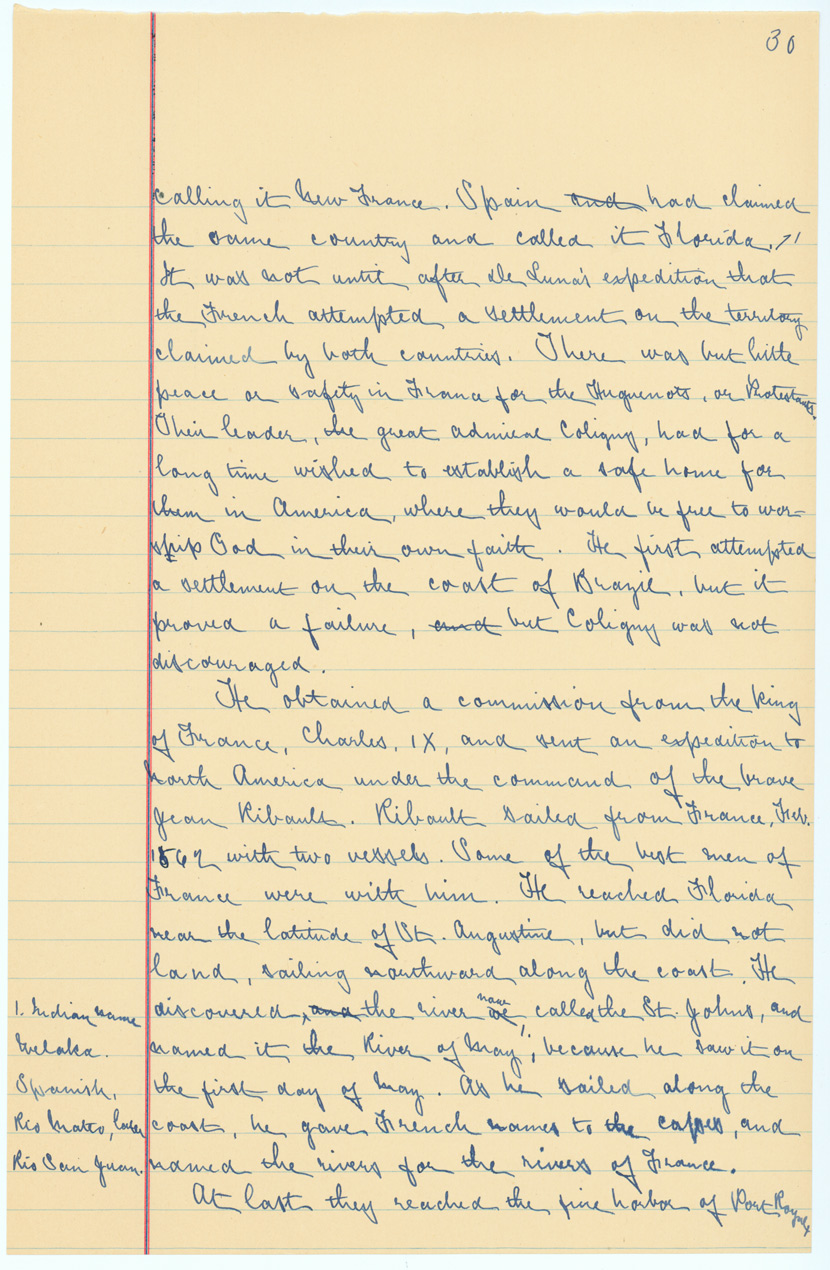 30
calling it New France. Spain and had claimed
the same country and called it Florida.
It was not until after De Luna's expedition that
the French attempted a settlement on the territory
claimed by both countries. There was but little
peace or safety in France for the Huguenots, or Protestants.
Their leader, the great admiral Coligny, had for a
long time wished to establish a safe home for
them in America, where they would be free to wor-
ship God in their own faith. He first attempted
a settlement on the coast of Brazil, but it
proved a failure, and but Coligny was not
discouraged.
He obtained a commission from the King
of France, Charles, IX, and sent an expedition to
North America under the command of the brave
Jean Ribault. Ribault sailed from France, Feb.
1562 with two vessels. Some of the best men of
France were with him. He reached Florida
near the latitude of St. Augustine, but did not
land, sailing northward along the coast. He
discovered, and the river now called the St. Johns, and
named it the River of May, because he saw it on
the first day of May. As he sailed along the
coast, he gave French names to the capes, and
named the rivers for the rivers of France.
At last they reached the fine harbor of Port Royal
1. Indian name
Welaka.
Spanish,
Rio Matto, later
Rio San Juan.